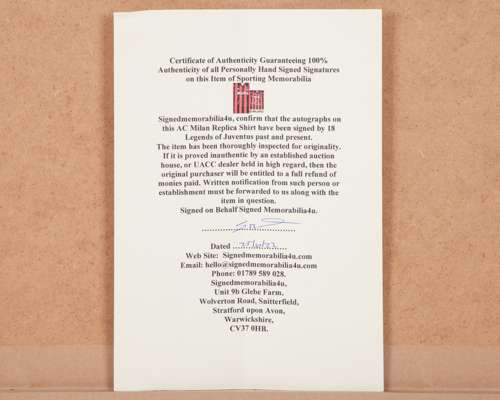 Certificate of Authenticity Guaranteeing 100%
Authenticity of all Personally Hand Signed Signatures
on this Item of Sporting Memorabilia
Signedmemorabilia4u, confirm that the autographs on
this AC Milan Replica Shirt have been signed by 18
Legends of Juventus past and present.
The item has been thoroughly inspected for originality.
If it is proved inauthentic by an established auction
house, or UACC dealer held in high regard, then the
original purchaser will be entitled to a full refund of
monies paid. Written notification from such person or
establishment must be forwarded to us along with the
item in question.
Signed on Behalf Signed Memorabilia4u.
Dated
Web Site: Signedmemorabilia4u.com
Email: hello@signedmemorabilia4u.com
Phone: 01789 589 028.
Signedmemorabilia4u,
Unit 9b Glebe Farm,
Wolverton Road, Snitterfield,
Stratford upon Avon,
Warwickshire,
CV37 0HR.